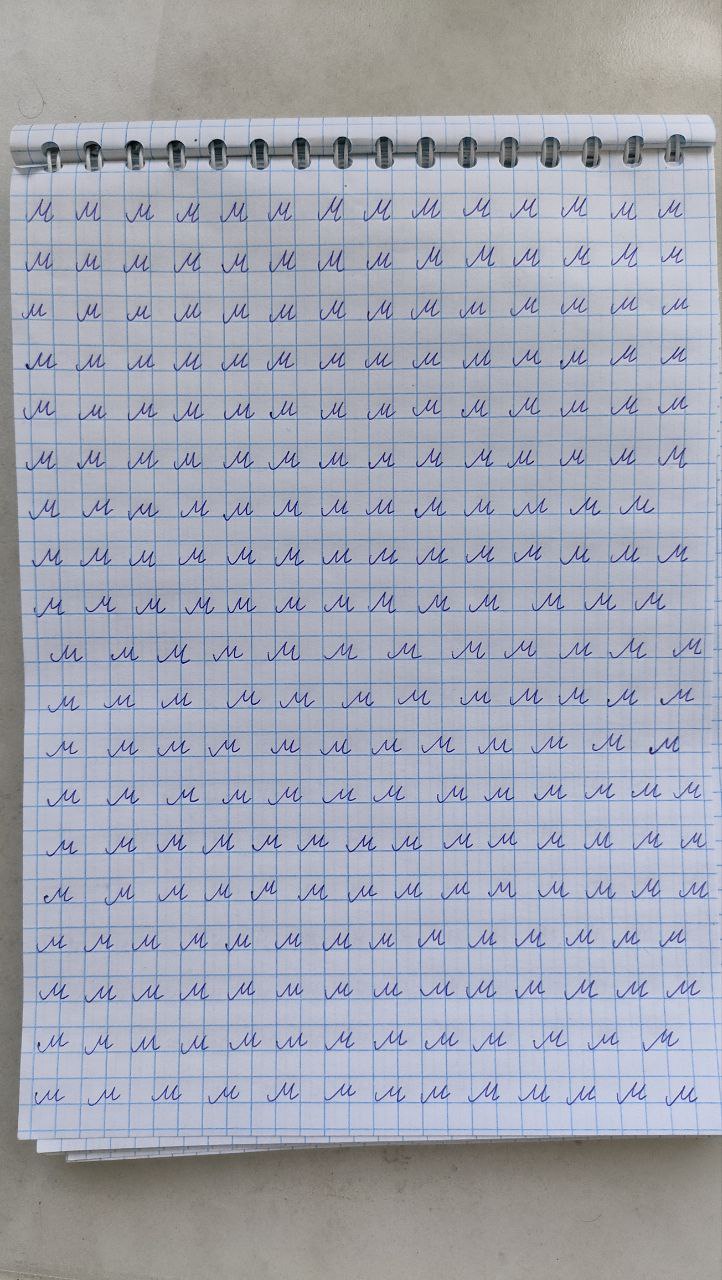 м м м м м м м м м м м м м м
м м м м м м м м м м м м м м
м м м м м м м м м м м м м м
м м м м м м м м м м м м м м
м м м м м м м м м м м м м м
м м м м м м м м м м м м м м
м м м м м м м м м м м м м
м м м м м м м м м м м м м м
м м м м м м м м м м м м м
м м м м м м м м м м м м
м м м м м м м м м м м м
м м м м м м м м м м м м
м м м м м м м м м м м м м
м м м м м м м м м м м м м м
м м м м м м м м м м м м м м
м м м м м м м м м м м м м м
м м м м м м м м м м м м м м
м м м м м м м м м м м м м
м м м м м м м м м м м м м